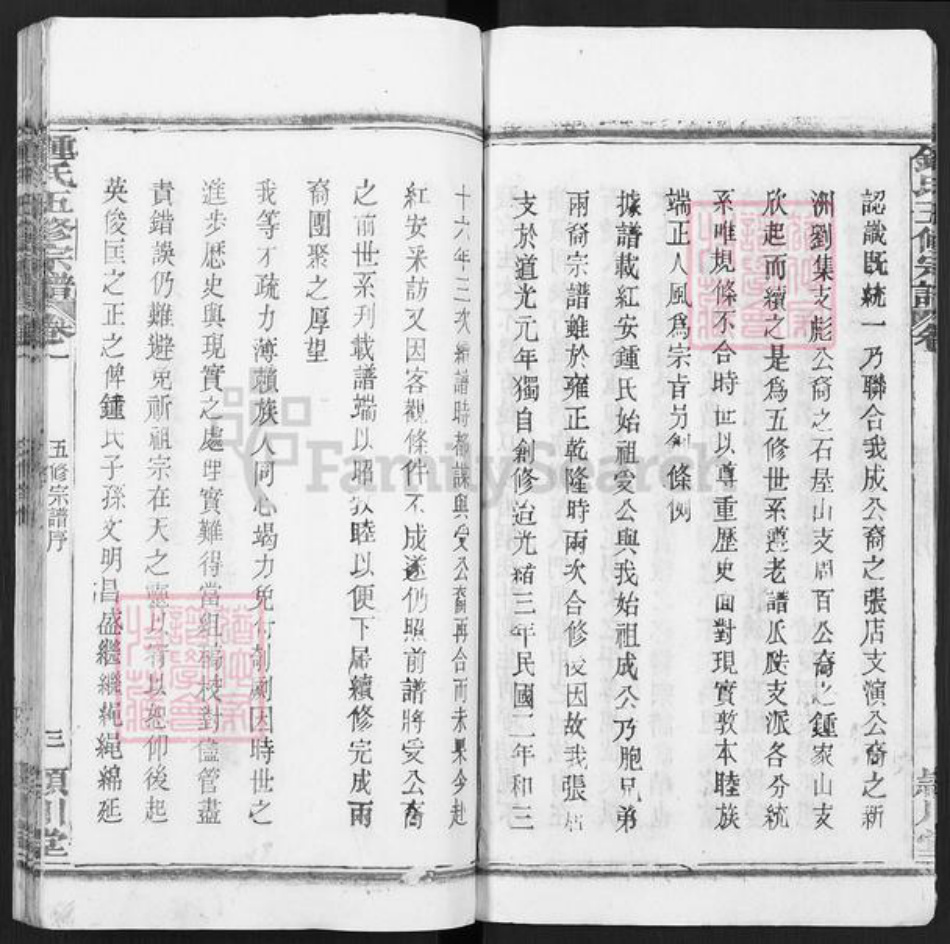 認識既統一乃聯合我成公裔之張店支演公裔之新
洲劉集支彪公裔之石屋山支開百公裔之鍾家山支
欣起而續之是爲五修世系遵老譜瓜瓞支派各分統
系唯規條不合時世以尊重歷史面對現實敦本睦族
端正人風爲宗旨另創條例
據譜載紅安鍾氏始祖受公與我始祖成公乃胞兄弟
兩裔宗譜雖於雍正乾隆時兩次合修後因故我張店
支於道光元年獨自創修迨光緒三年民國二年和三
十六年三次續譜時都謀與受公裔再合而未果今赴
紅安采訪又因客觀條件不成遂仍照前譜將受公裔
之前世系刊載譜端以昭敦睦以便下屆續修完成兩
裔團聚之厚望
我等才疏力薄賴族人同心竭力免付剞劂因時世之
進步歷史與現實之處理實難得當組稿校對儘管盡
責錯誤仍難避免祈祖宗在天之靈以宥以恕仰後起
英俊匡之正之俾鍾氏子孫文明昌盛繼繼繩繩綿延
鍾氏五修宗譜 卷一
五修宗譜序
三
潁川堂
FamilySearch